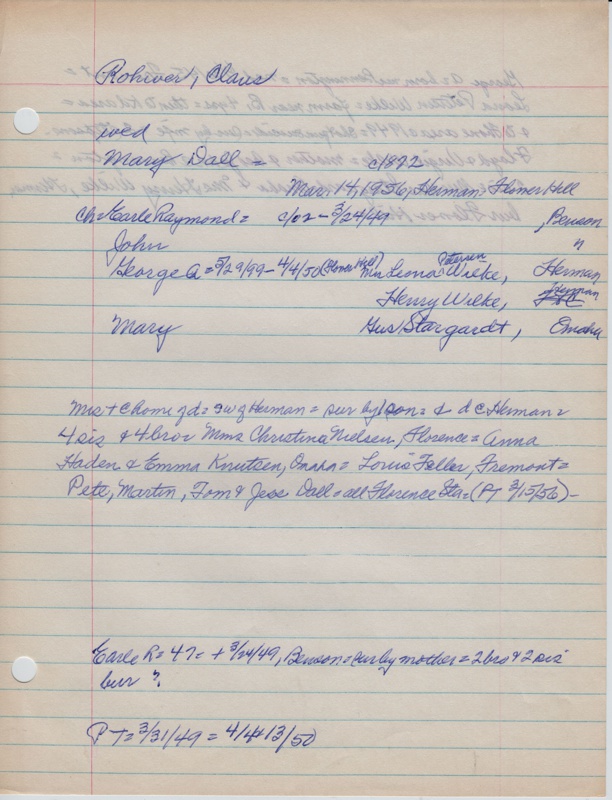 Rohwer, Claus
wed
Mary Dall = c/1872
Mar. 14, 1956, Herman Flower Hill
Ch = Earle Raymond = c/02 - 3/24/49 , Benson
John
George A = 5/29/99 - 4/4/50 (Flower Hill) Mrs Leona Petersen Wilke, Herman
Henry Wilke, Herman
Mary Gus Stargardt, Omaha
Mrs + C home of d = 9 w of Herman = sur by 1 son = & d C Herman =
4 sis & 4 bros Mmes Christina Nielsen, Florence = Anna
Haden & Emma Knutsen, Omaha = Louis Feller, Fremont =
Pete, Martin, Tom & Jess Dall = all Florence Sta = (PT 3/15/56) -
Earle R = 47 = + 3/24/49, Benson = sur by mother = 2 bro & 2 sis
bur ?
PT = 3/31/49 = 4/4 + 13/50